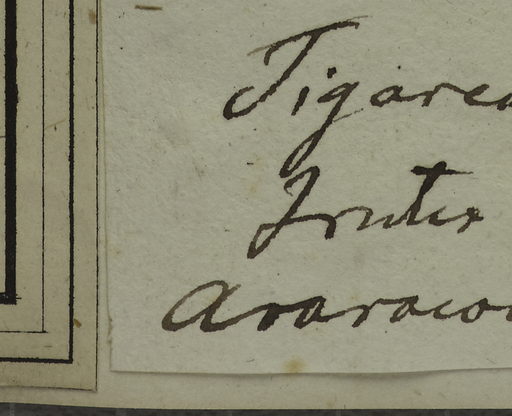 Tigarea
Frutex
Araracoa